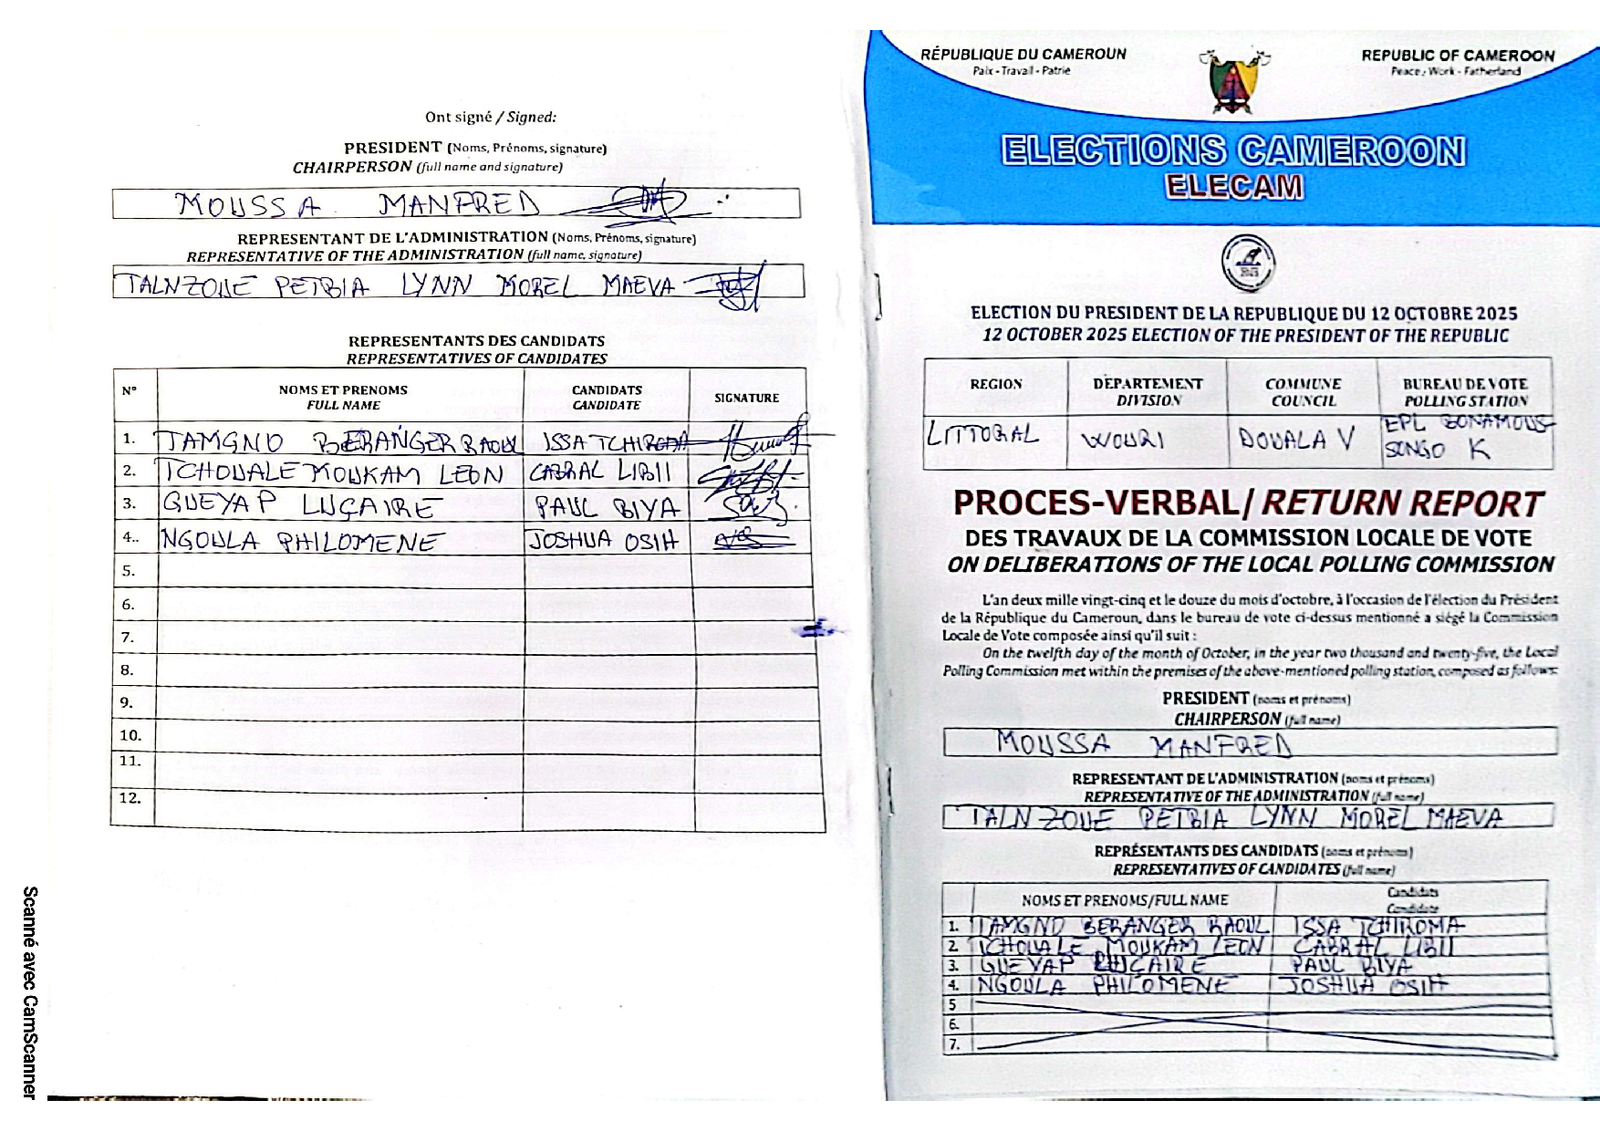 Ont signé / Signed:
PRESIDENT (Noms, Prénoms, signature)
CHAIRPERSON (full name and signature)
MOUSSA MANFRED
REPRESENTANT DE L'ADMINISTRATION (Noms, Prénoms, signature)
REPRESENTATIVE OF THE ADMINISTRATION (full name, signature)
TALNZOUE PETBIA LYNN MOREL MAEVA
REPRESENTANTS DES CANDIDATS
REPRESENTATIVES OF CANDIDATES
N° NOMS ET PRENOMS FULL NAME CANDIDATS CANDIDATE SIGNATURE
1. TAMGNO BERANGER RAOUL ISSA TCHIROMA
2. TCHOUALE MOUKAM LEON CABRAL LIBII
3. GUEYAP LUCAIRE PAUL BIYA
4.. NGOULA PHILOMENE JOSHUA OSIH
5.
6.
7.
8.
9.
10.
11.
12.
Scanné avec CamScanner
RÉPUBLIQUE DU CAMEROUN
Paix - Travail - Patrie
REPUBLIC OF CAMEROON
Peace - Work - Fatherland
ELECTIONS CAMEROON
ELECAM
ELECTION DU PRESIDENT DE LA REPUBLIQUE DU 12 OCTOBRE 2025
12 OCTOBER 2025 ELECTION OF THE PRESIDENT OF THE REPUBLIC
REGION DEPARTEMENT DIVISION COMMUNE COUNCIL BUREAU DE VOTE POLLING STATION
LITTORAL WOURI DOUALA V EPL BONAMOUS-
SONGO K
PROCES-VERBAL/ RETURN REPORT
DES TRAVAUX DE LA COMMISSION LOCALE DE VOTE
ON DELIBERATIONS OF THE LOCAL POLLING COMMISSION
L'an deux mille vingt-cinq et le douze du mois d'octobre, à l'occasion de l'élection du Président
de la République du Cameroun, dans le bureau de vote ci-dessus mentionné a siégé la Commission
Locale de Vote composée ainsi qu'il suit :
On the twelfth day of the month of October, in the year two thousand and twenty-five, the Local
Polling Commission met within the premises of the above-mentioned polling station, composed as follows:
PRESIDENT (noms et prénoms)
CHAIRPERSON (full name)
MOUSSA MANFRED
REPRESENTANT DE L'ADMINISTRATION (noms et prénoms)
REPRESENTATIVE OF THE ADMINISTRATION (full name)
TALNZOUE PETBIA LYNN MOREL MAEVA
REPRÉSENTANTS DES CANDIDATS (noms et prénoms)
REPRESENTATIVES OF CANDIDATES (full name)
NOMS ET PRENOMS/FULL NAME Candidats Candidate
1. TAMGNO BERANGER RAOUL ISSA TCHIROMA
2. TCHOUALE MOUKAM LEON CABRAL LIBII
3. GUEYAP LUCAIRE PAUL BIYA
4. NGOULA PHILOMENE JOSHUA OSIH
5
6.
7.